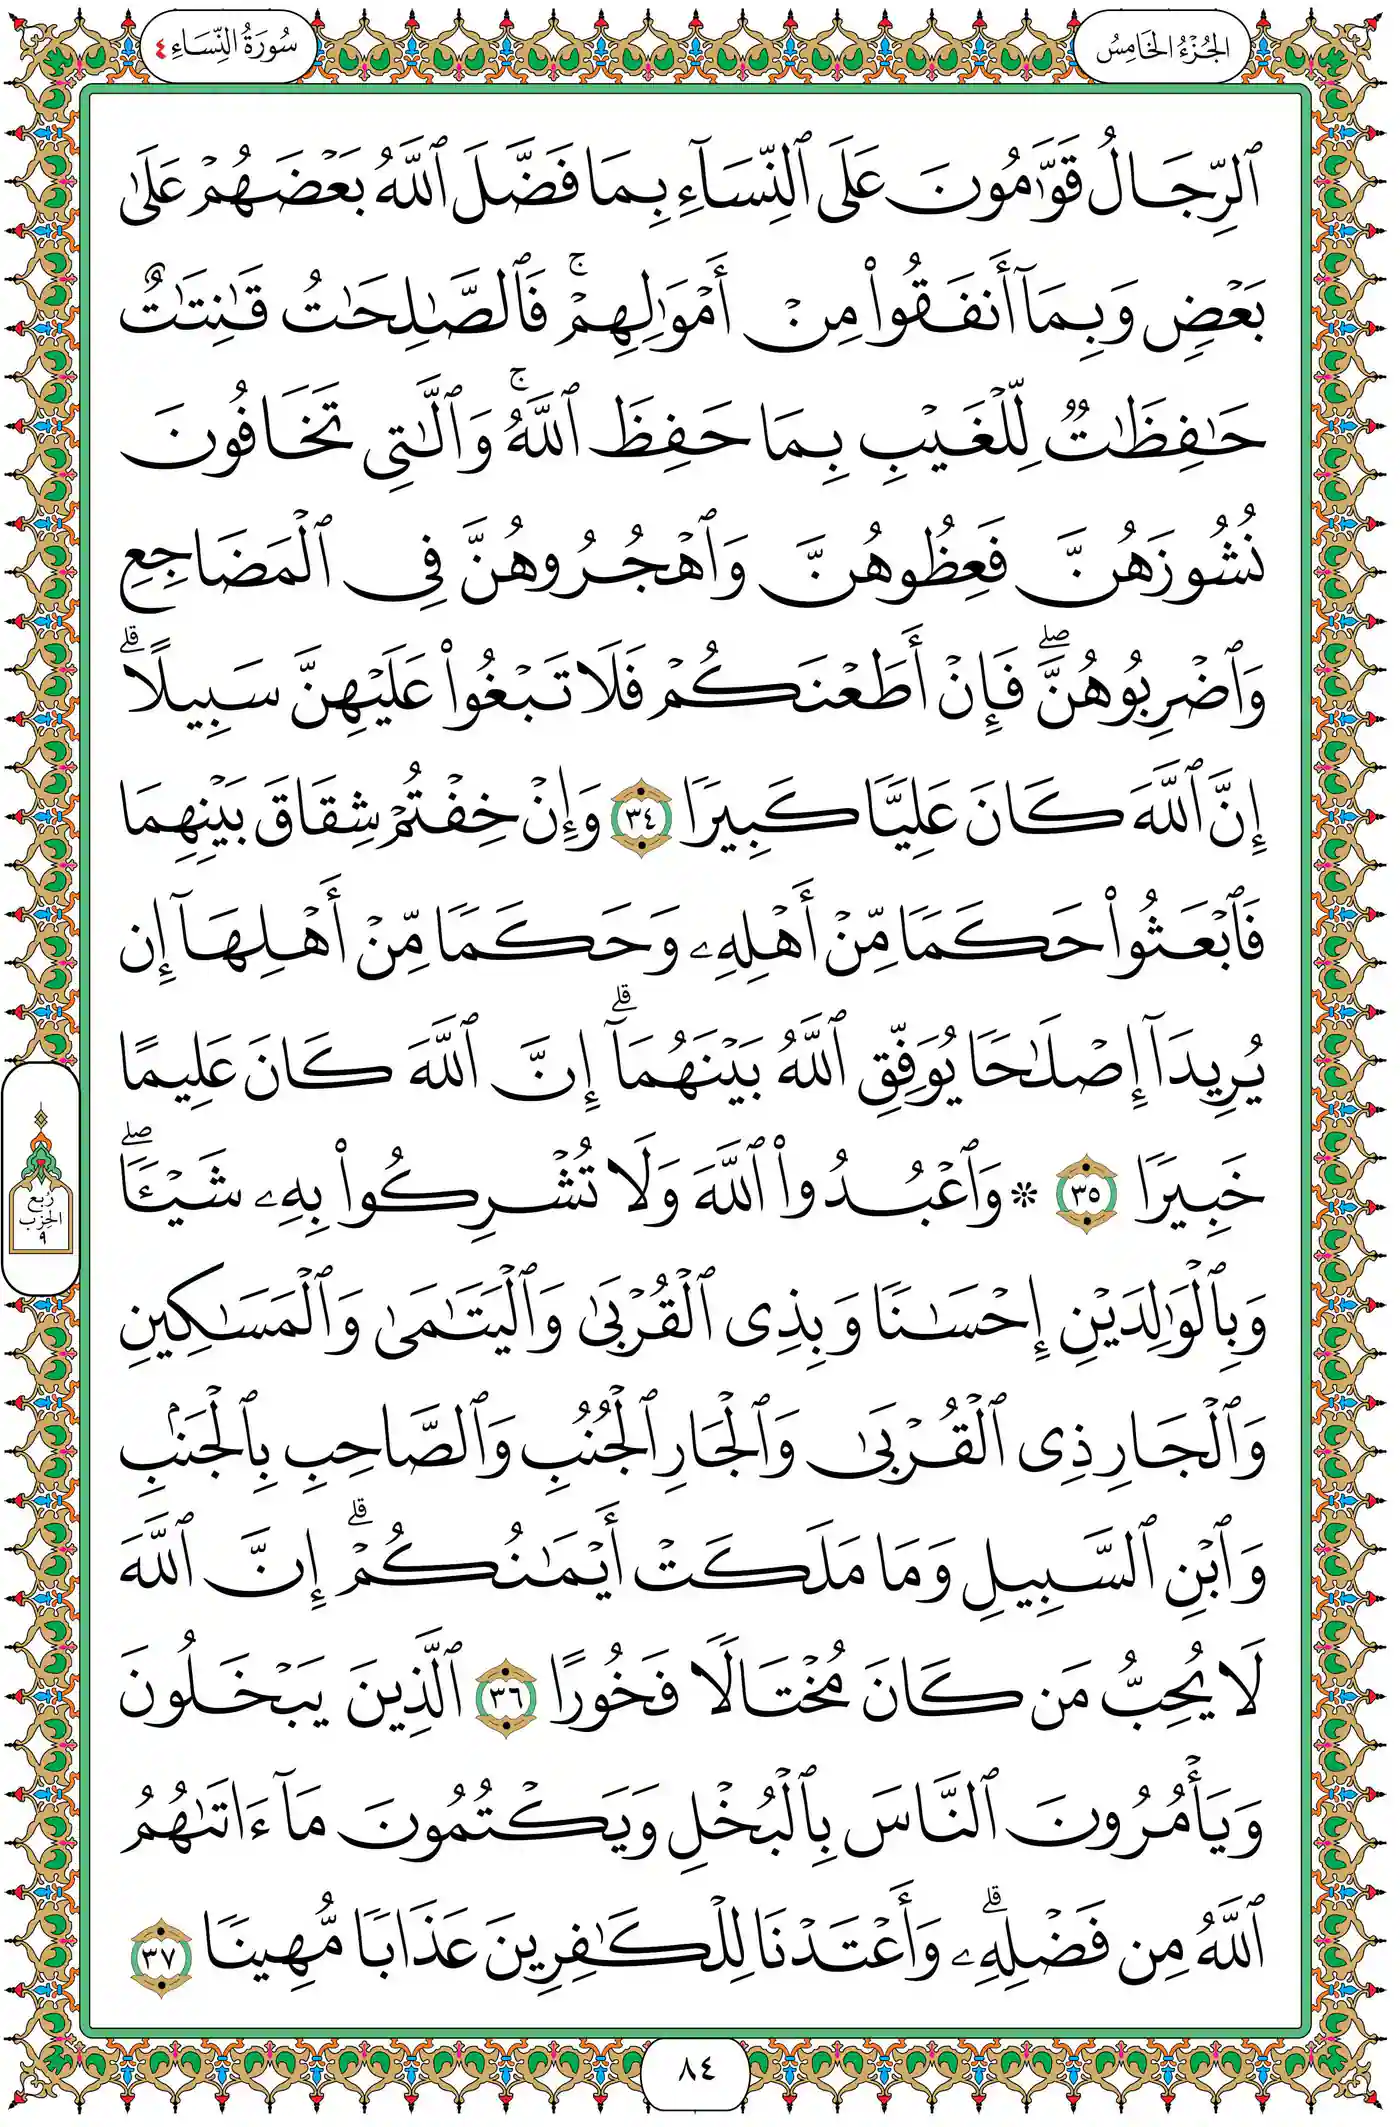 الجُزْءُ الخَامِسُ
سُورَةُ النِّسَاءِ ٤
ٱلرِّجَالُ قَوَّٰمُونَ عَلَى ٱلنِّسَآءِ بِمَا فَضَّلَ ٱللَّهُ بَعۡضَهُمۡ عَلَىٰ
بَعۡضٖ وَبِمَآ أَنفَقُواْ مِنۡ أَمۡوَٰلِهِمۡۚ فَٱلصَّٰلِحَٰتُ قَٰنِتَٰتٌ
حَٰفِظَٰتٞ لِّلۡغَيۡبِ بِمَا حَفِظَ ٱللَّهُۚ وَٱلَّٰتِي تَخَافُونَ
نُشُوزَهُنَّ فَعِظُوهُنَّ وَٱهۡجُرُوهُنَّ فِي ٱلۡمَضَاجِعِ
وَٱضۡرِبُوهُنَّۖ فَإِنۡ أَطَعۡنَكُمۡ فَلَا تَبۡغُواْ عَلَيۡهِنَّ سَبِيلًاۗ
إِنَّ ٱللَّهَ كَانَ عَلِيّٗا كَبِيرٗا ٣٤ وَإِنۡ خِفۡتُمۡ شِقَاقَ بَيۡنِهِمَا
فَٱبۡعَثُواْ حَكَمٗا مِّنۡ أَهۡلِهِۦ وَحَكَمٗا مِّنۡ أَهۡلِهَآ إِن
يُرِيدَآ إِصۡلَٰحٗا يُوَفِّقِ ٱللَّهُ بَيۡنَهُمَآۗ إِنَّ ٱللَّهَ كَانَ عَلِيمًا
خَبِيرٗا ٣٥ ۞ وَٱعۡبُدُواْ ٱللَّهَ وَلَا تُشۡرِكُواْ بِهِۦ شَيۡـٔٗاۖ
وَبِٱلۡوَٰلِدَيۡنِ إِحۡسَٰنٗا وَبِذِي ٱلۡقُرۡبَىٰ وَٱلۡيَتَٰمَىٰ وَٱلۡمَسَٰكِينِ
وَٱلۡجَارِ ذِي ٱلۡقُرۡبَىٰ وَٱلۡجَارِ ٱلۡجُنُبِ وَٱلصَّاحِبِ بِٱلۡجَنۢبِ
وَٱبۡنِ ٱلسَّبِيلِ وَمَا مَلَكَتۡ أَيۡمَٰنُكُمۡۗ إِنَّ ٱللَّهَ
لَا يُحِبُّ مَن كَانَ مُخۡتَالٗا فَخُورًا ٣٦ ٱلَّذِينَ يَبۡخَلُونَ
وَيَأۡمُرُونَ ٱلنَّاسَ بِٱلۡبُخۡلِ وَيَكۡتُمُونَ مَآ ءَاتَىٰهُمُ
ٱللَّهُ مِن فَضۡلِهِۦۗ وَأَعۡتَدۡنَا لِلۡكَٰفِرِينَ عَذَابٗا مُّهِينٗا ٣٧
رُبع
الحِزْب
٩
٨٤